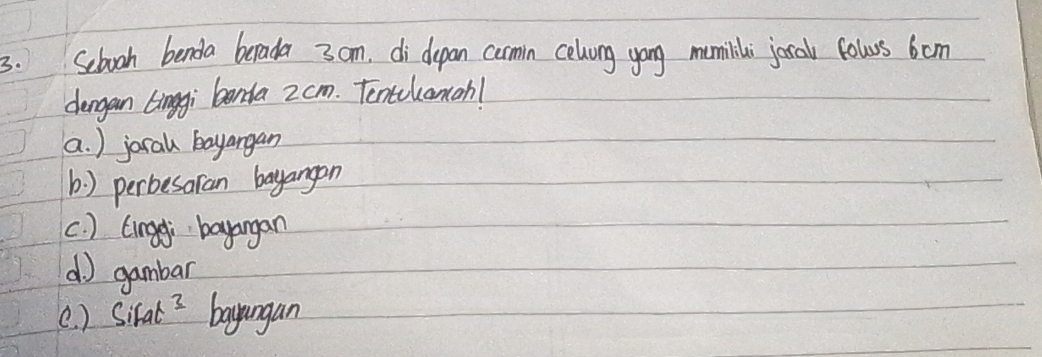 3. Sebuah benda berada 3 cm. di depan cermin cekung yang memiliki jarak fokus 6 cm
dengan tinggi benda 2 cm. Tentukanlah!
a.) jarak bayangan
b.) perbesaran bayangan
c.) tinggi bayangan
d.) gambar
e.) Sifat ² bayangan